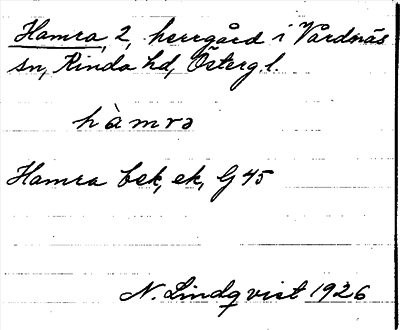 Hamra, 2, herrgård i Vårdnäs
sn, Kinda hd, Östergl.
hàmra
Hamra bsk, ek, G 45
N. Lindqvist 1926